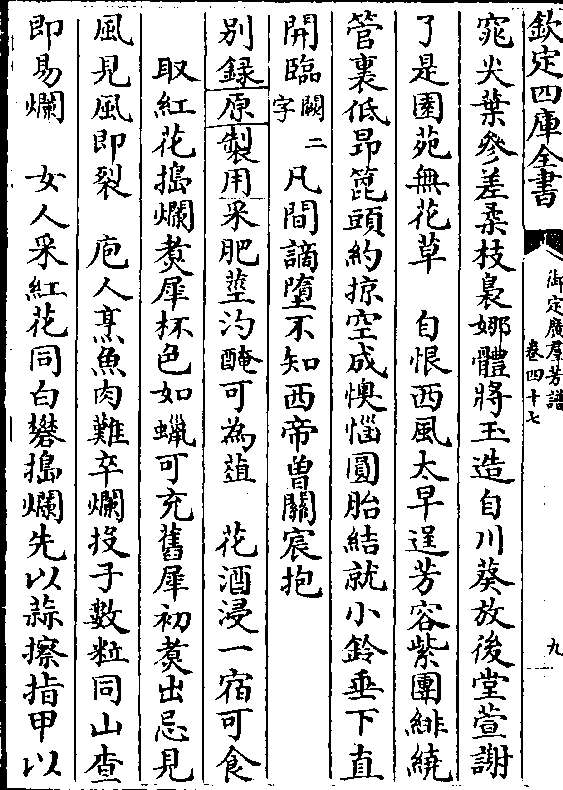 欽定四庫全書
御定廣羣芳譜
卷四十七
九
窕尖葉參差柔枝裊娜體將玉造自川葵放後堂萱謝
了是園苑無花草　自恨西風太早逞芳容紫團緋繞
管裏低昂篦頭約掠空成懊惱圓胎結就小鈴垂下直
開臨闕二字凡間謫墮不知西帝曽關宸抱
别録原製用采肥莖汋醃可為葅　花酒浸一宿可食
取紅花搗爛煑犀杯色如蠟可充舊犀初煑出忌見
風見風即裂　庖人烹魚肉難卒爛投子數粒同山查
即易爛　女人采紅花同白礬搗爛先以蒜擦指甲以